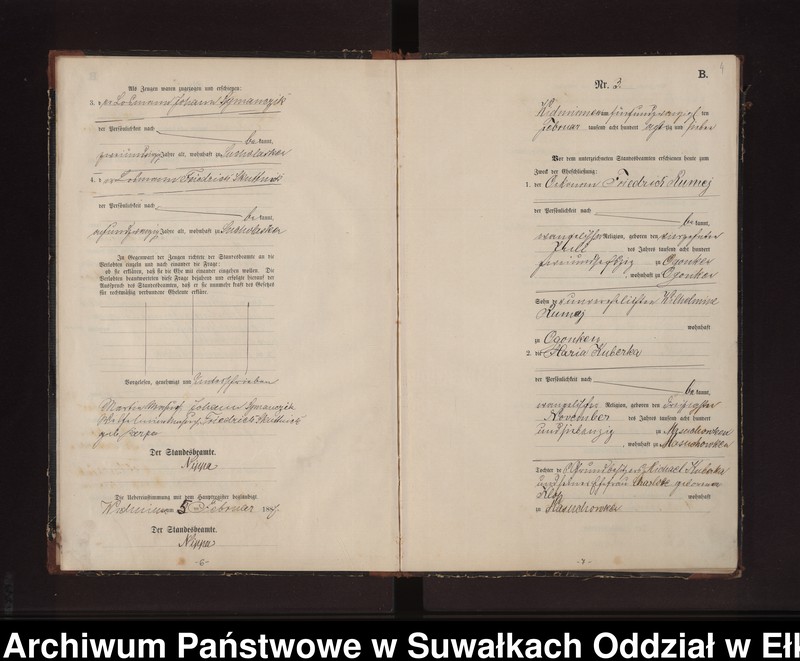 Als Zeugen waren zugezogen und erschienen:
3. der Losmann Johann Symanczik
der Persönlichkeit nach
be kannt,
Jahre alt, wohnhaft zu Sucholasken
4. der Losmann Friedrich Skuttnik
der Persönlichkeit nach
be kannt,
Jahre alt, wohnhaft zu Sucholasken
In Gegenwart der Zeugen richtete der Standesbeamte an die
Verlobten einzeln und nach einander die Frage:
ob sie erklären, daß sie die Ehe mit einander eingehen wollen. Die
Verlobten beantworteten diese Frage bejahend und erfolgte hierauf der
Ausspruch des Standesbeamten, daß er sie nunmehr kraft des Gesetzes
für rechtmäßig verbundene Eheleute erkläre.
Vorgelesen, genehmigt und Unterschrieben
Johann Symanczik
Friedrich Skuttnik
geb.
Der Standesbeamte.
Nippa
Die Uebereinstimmung mit dem Hauptregister beglaubigt
Widminnen am 5 Februar 1887.
Der Standesbeamte.
Nippa
-6-
B.
4
Nr. 3.
Widminnen am fünfundzwanzigsten
Februar tausend acht hundert achtzig und sieben
Vor dem unterzeichneten Standesbeamten erschienen heute zum
Zweck der Eheschließung:
1. der Friedrich Rumej
der Persönlichkeit nach
be kannt,
evangelischer Religion, geboren den vierzehnten
des Jahres tausend acht hundert
zweiundsechzig zu Ogonken
, wohnhaft zu Ogonken
Sohn der unverehelichten Wilhelmine
Rumej
wohnhaft
zu Ogonken
2. die Maria Kuberka
der Persönlichkeit nach
be kannt,
evangelischer Religion, geboren den dreißigsten
November des Jahres tausend acht hundert
undsiebenzig zu Masuchowken
, wohnhaft zu Masuchowken
Tochter des Grundbesitzers Michael Kuberka
und seiner Ehefrau Charlotte geborenen
wohnhaft
zu Masuchowken
-7-
Archiwum Państwowe w Suwałkach Oddział w Ełk